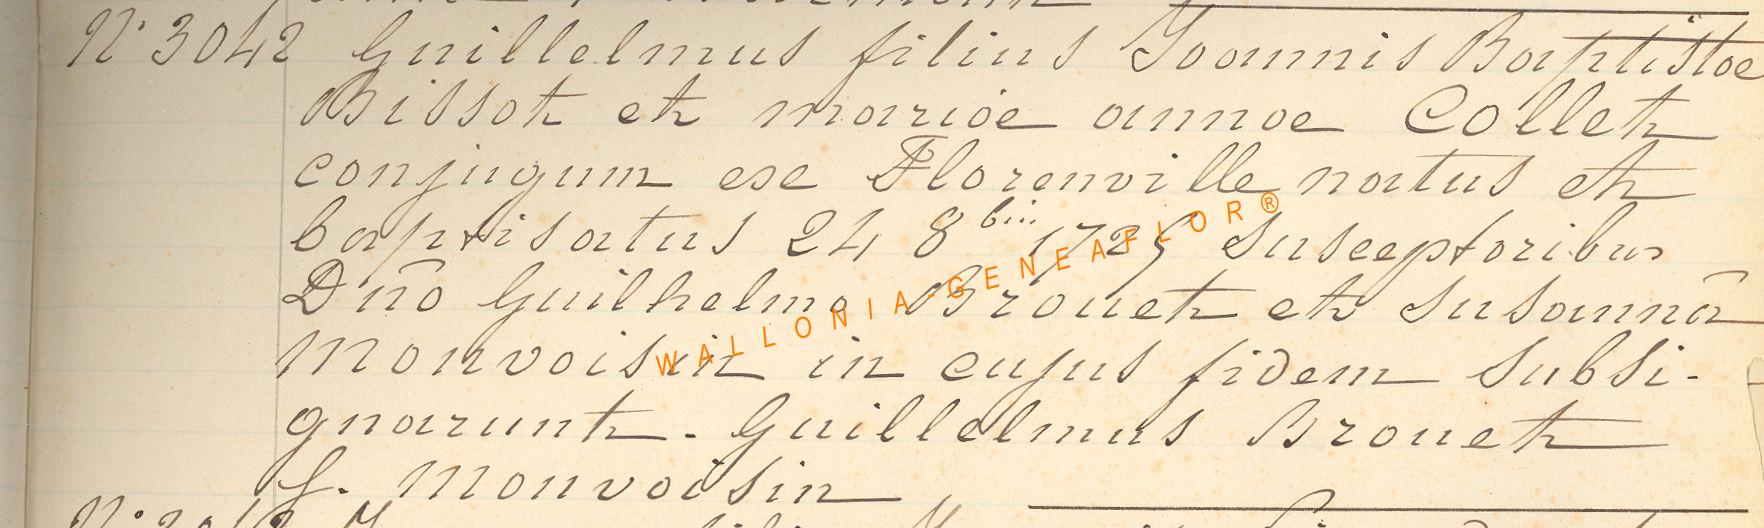 N° 3042 Guillelmus filius Joannis Baptistae
Bissot et mariae annae Collet
conjugum ex Florenville natus et
baptisatus 24 8bris 1725 Susceptoribus
Dño Guilhelmo Brouet et Susannā
Monvoisin in cujus fidem Subsi-
gnarunt. Guillelmus Brouet
S. Monvoisin
WALLONIA-GENEAFLOR®